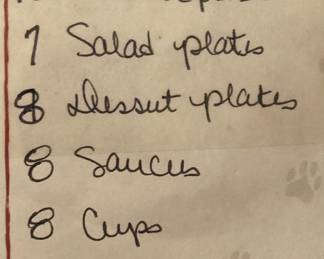 7 Salad plates
8 Dessert plates
8 Saucers
8 Cups